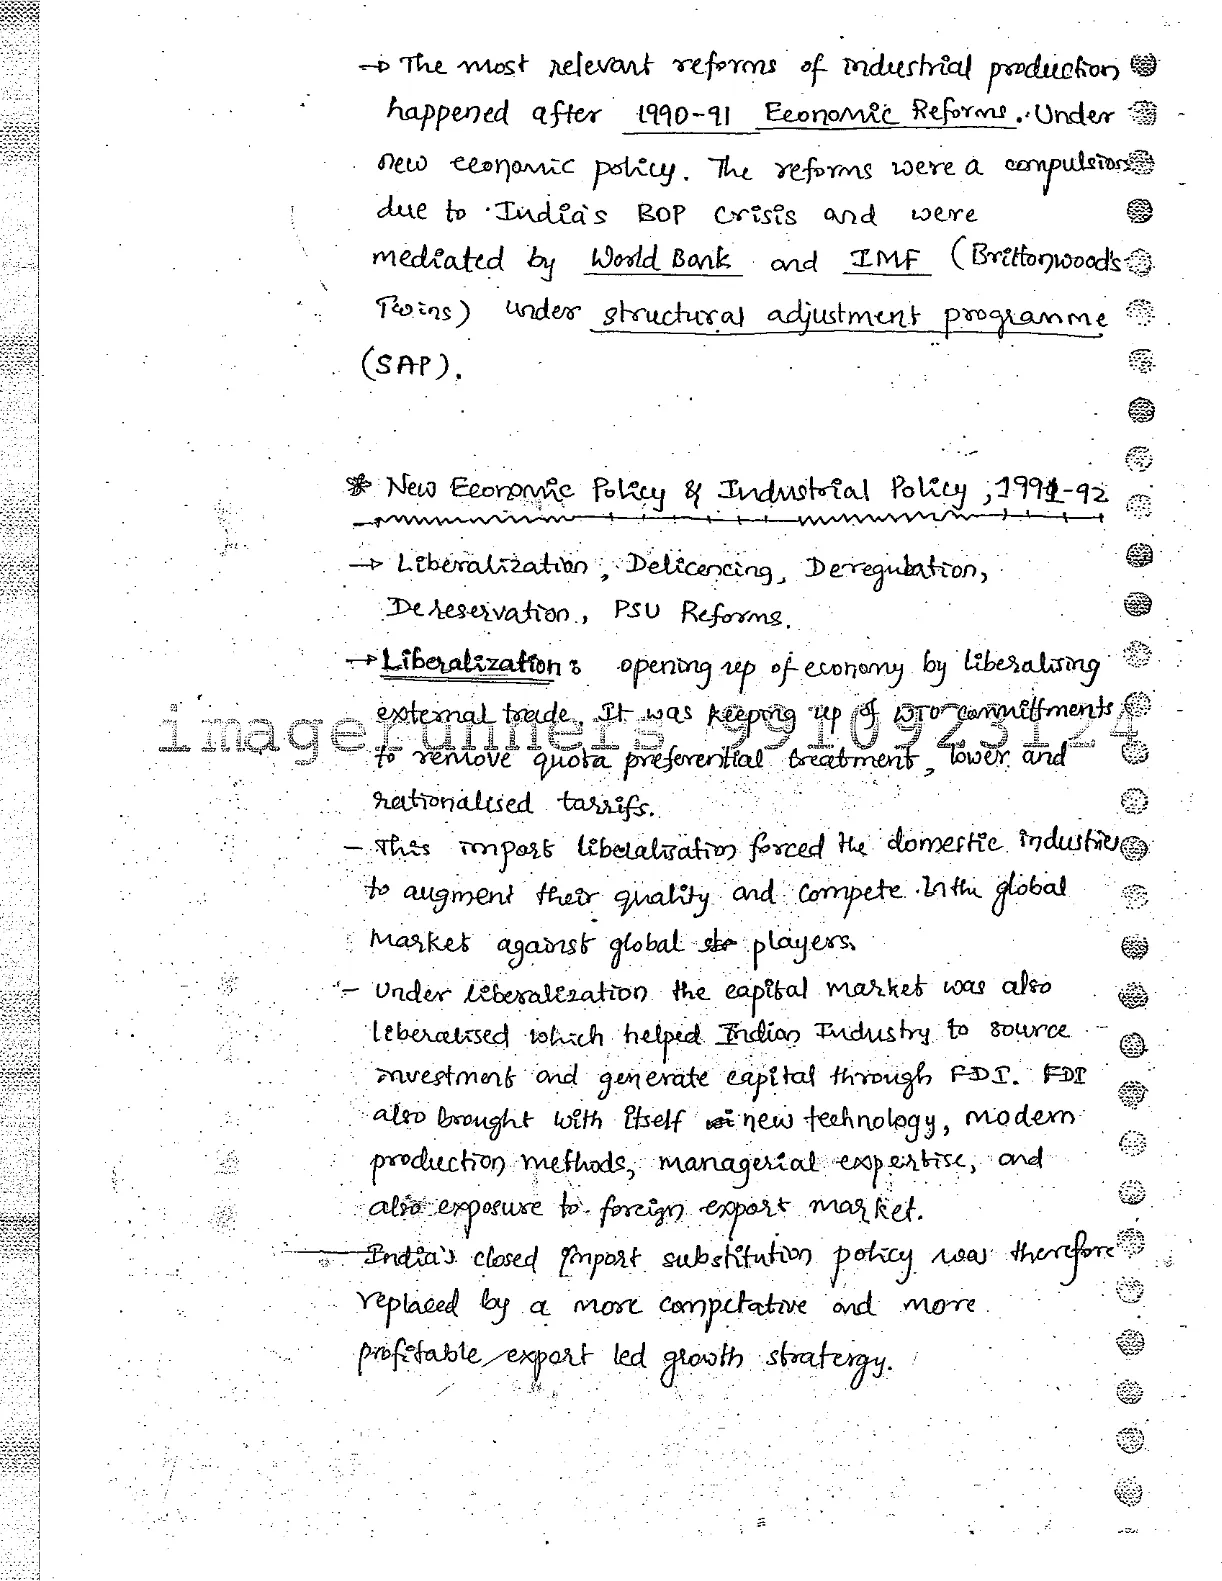 → The most relevant reforms of industrial production
happened after 1990-91 Economic Reforms. Under
new economic policy. The reforms were a compulsion
due to India's BOP crisis and were
mediated by World Bank and IMF (Brittonwood's
Twins) under structural adjustment programme
(SAP).
* New Economic Policy & Industrial Policy, 1991-92
→ Liberalization, Delicencing, Deregulation,
Dereservation, PSU Reforms.
→ Liberalization : opening up of economy by liberalising
external trade. It was keeping up of WTO commitments
imagerunners 9910923124
to remove quota preferential treatment, lower and
rationalised tarrifs.
- This import liberalisation forced the domestic industries
to augment their quality and compete in the global
market against global players.
- Under liberalization the capital market was also
liberalised which helped Indian Industry to source
investment and generate capital through FDI. FDI
also brought with itself new technology, modern
production methods, managerial expertise, and
also exposure to foreign export market.
- India's closed import substitution policy was therefore
replaced by a more competative and more
profitable export led growth stratergy.